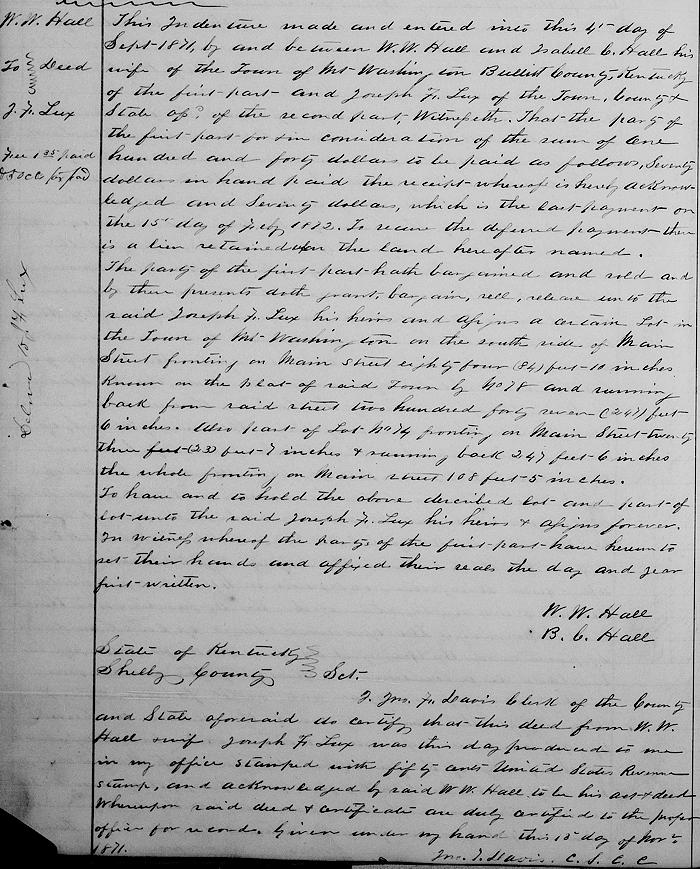 W. W. Hall
To Deed
J. F. Lux
Fee 1 25 paid
Delivered to J. F. Lux
This Indenture made and entered into this 4" day of
Sept 1871, by and between W. W. Hall and Izabell C. Hall his
wife of the Town of Mt Washington Bullitt County Kentucky
of the first part and Joseph F. Lux of the Town, County &
State afsd. of the second part, Witnesseth. That the party of
the first part for & in consideration of the sum of One
hundred and forty dollars to be paid as follows, Seventy
dollars in hand paid the receipt whereof is hereby acknow
ledged and Seventy dollars, which is the last payment on
the 15" day of Feby 1872. To secure the deferred payment there
is a lien retained on the land hereafter named.
The party of the first part hath bargained and sold and
by these presents doth grant, bargain, sell, release unto the
said Joseph F. Lux his heirs and assigns a certain Lot in
the Town of Mt Washington on the south side of Main
Street fronting on Main Street eighty four (84) feet 10 inches
Known on the plat of said Town by No 78 and running
back from said street two hundred forty seven (247) feet
6 inches. Also part of Lot No 74 fronting on Main Street twenty
three feet (23) feet 7 inches & running back 247 feet 6 inches
the whole fronting on Main street 108 feet 5 inches.
To have and to hold the above described lot and part of
lot unto the said Joseph F. Lux his heirs & assigns forever.
In witness whereof the partys of the first part have hereunto
set their hands and affixed their seals the day and year
first written.
W. W. Hall
B. C. Hall
State of Kentucky
Shelby County Sct.
I. Jno. F. Davis Clerk of the County
and State aforesaid do certify that this deed from W. W.
Hall & wife Joseph F Lux was this day produced to me
in my office stamped with fifty cents United States Revenue
stamp, and acknowledged by said W W. Hall to be his act & deed
Whereupon said deed & certificate are duly certified to the proper
office for record. Given under my hand this 15 day of Novr
1871.
Jno. F. Davis. C. S. C. C